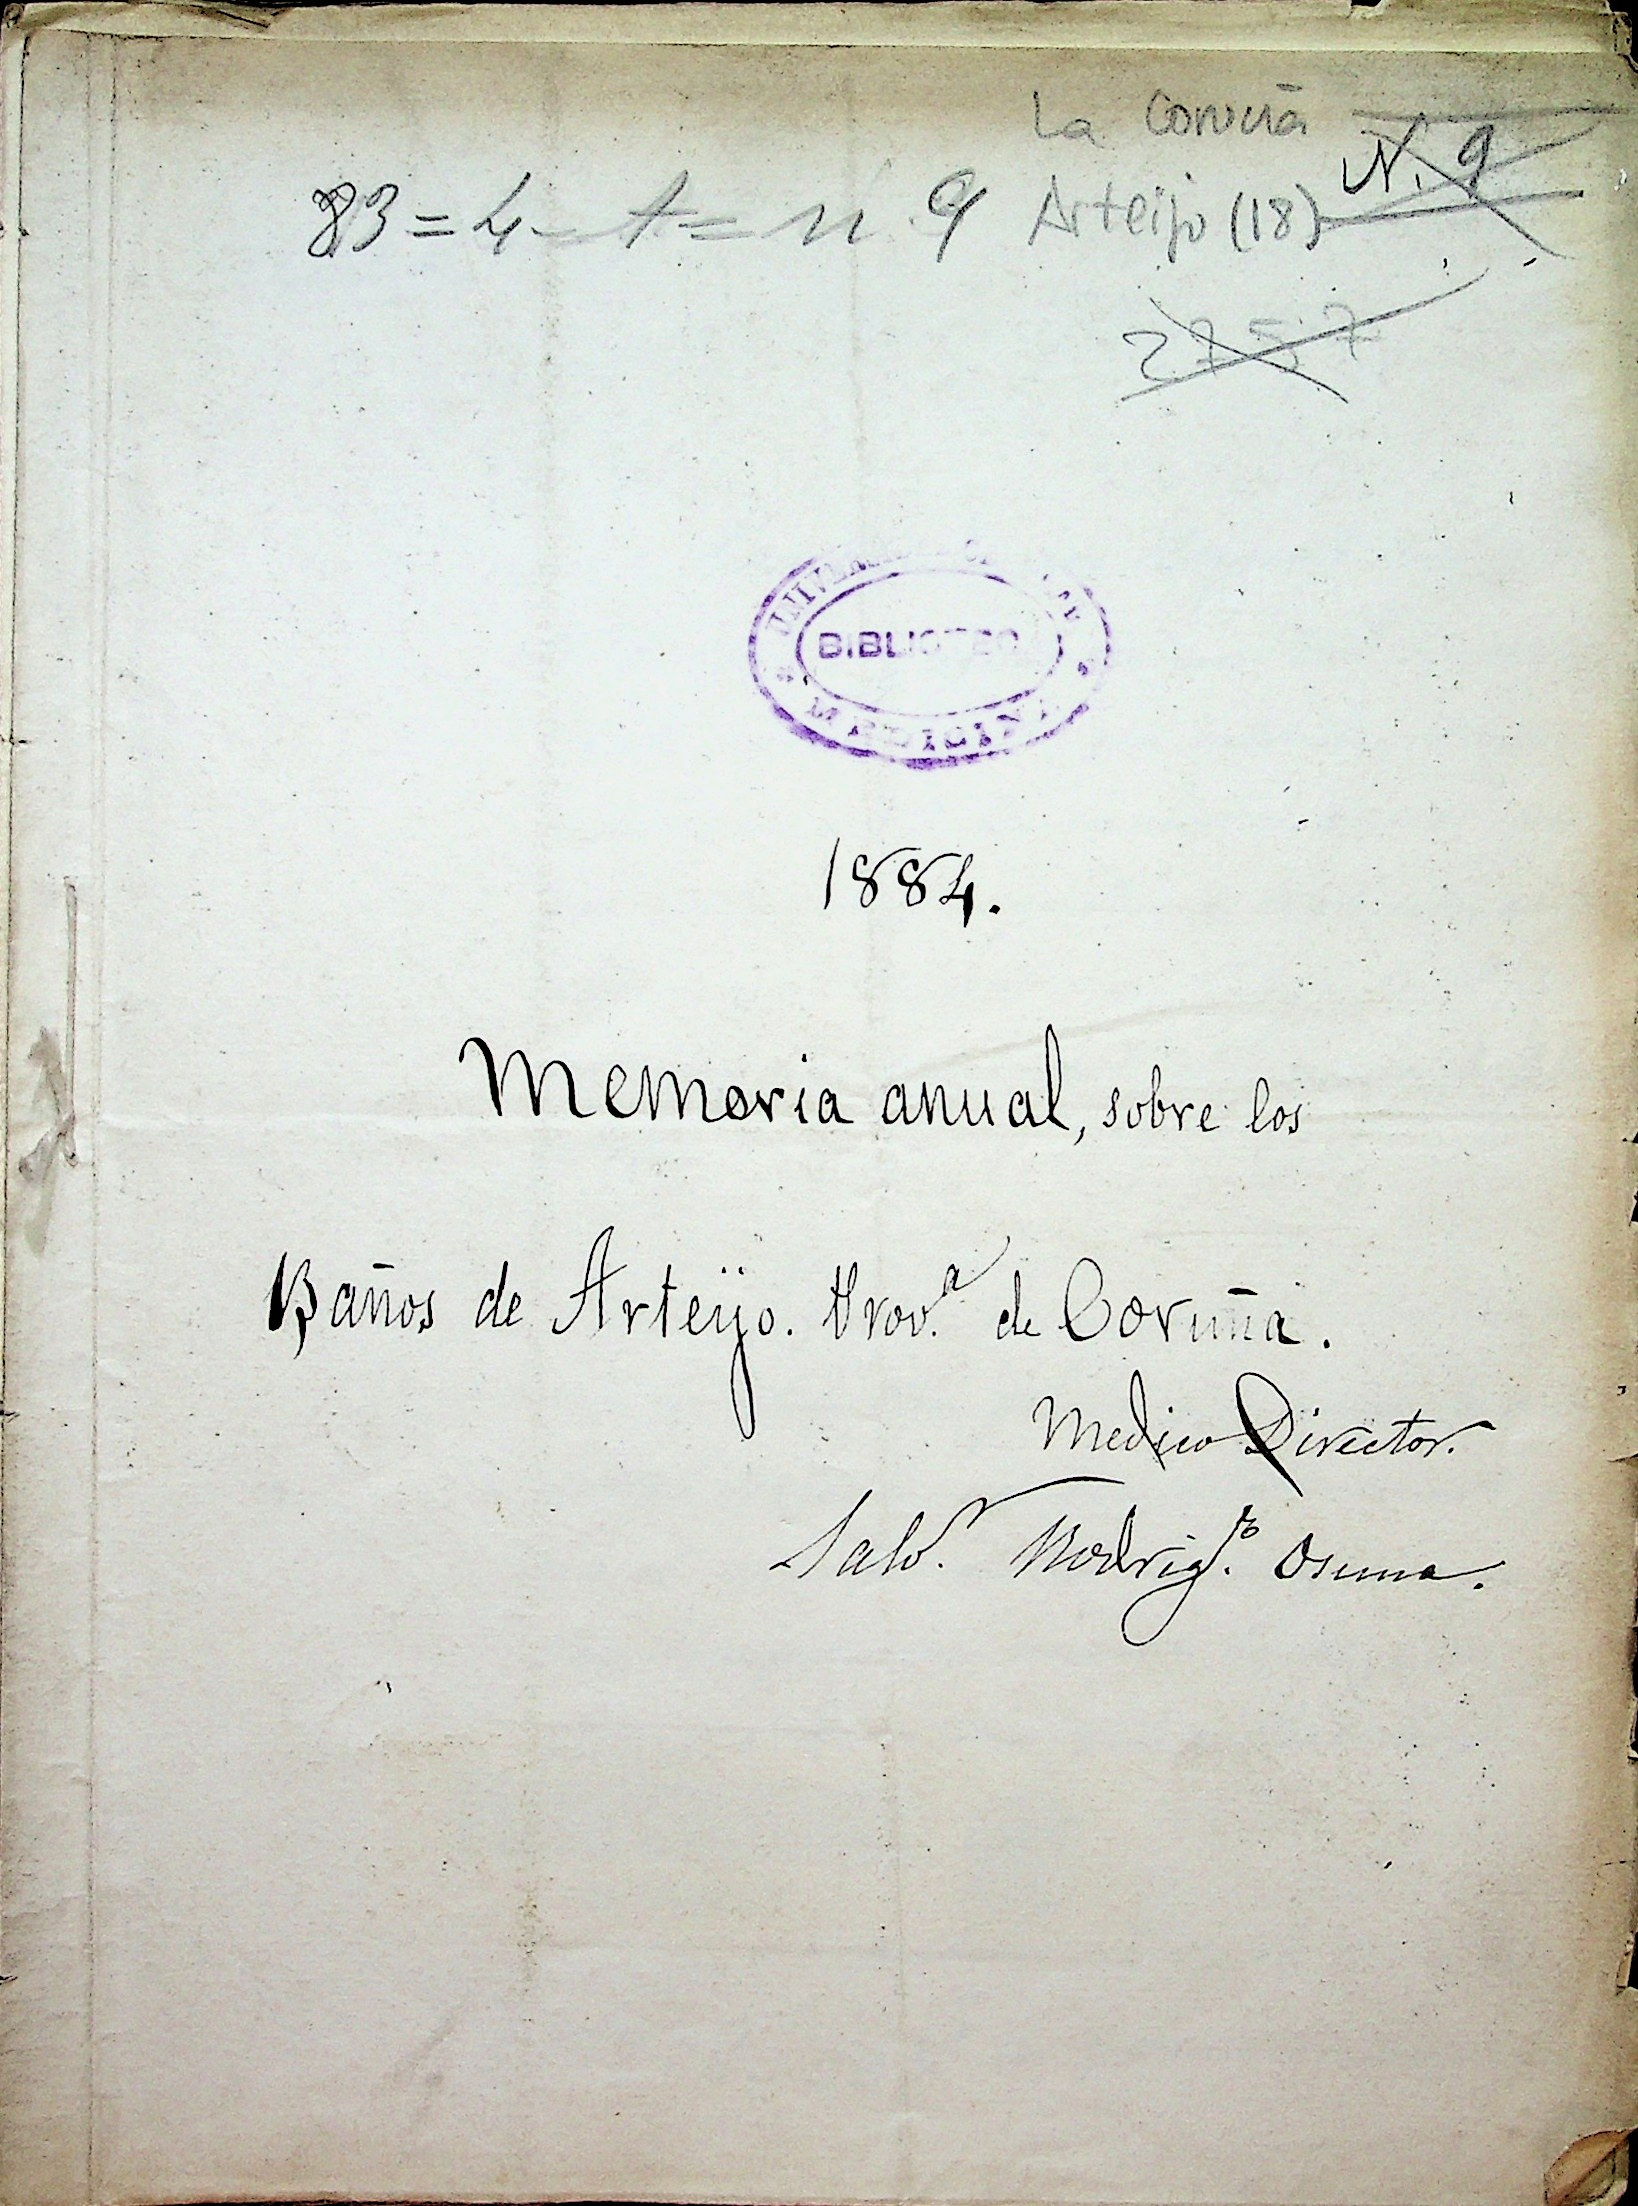 La Coruña
N. 9
83=4-A=n.9 Arteijo (18)
2757
BIBLIOTEC
MEDICINA
1884.
Memoria anual, sobre los
Baños de Arteijo. Prov.ª de Coruña.
Medico Director.
Salv.r Rodrig.z Osuna.